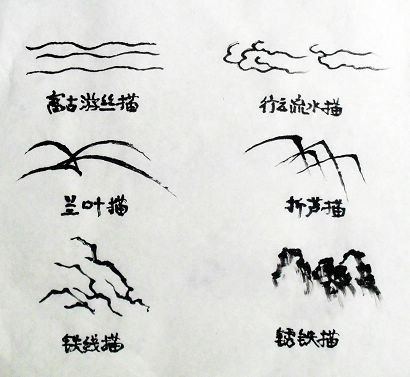 高古游丝描
行云流水描
兰叶描
折芦描
铁线描
锈铁描